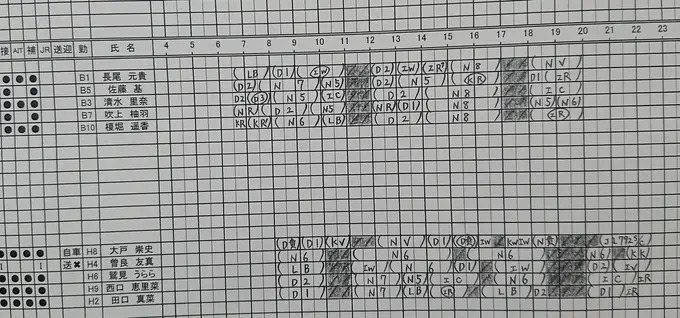 接 AIT 補 JR 送迎 勤 氏 名 4 5 6 7 8 9 10 11 12 13 14 15 16 17 18 19 20 21 22 23
B1 長尾 元貴 (LB)(D1)(IW) (D2)(IW)(IR)(N8) (NV)
B5 佐藤 基 (D2)(N7)(N5) (D2)(N5)(KR) (D1)(IR)
B3 清水 里奈 D2(D3)(N5)(IC)(D2)(N8) (IC)
B7 吹上 柚羽 (NR)(D2)(N5) (NR)(D1)(N8) (N5)(N6)
B10 榎堀 遥香 KR(KR)(N6)(LB) (D2)(N8) (IR)
自車 H8 大戸 崇史 (D食)(D1)(KV) (NV)(D1)(D食) IW KW IW (N食)
送✖ H4 曽良 友真 (N6) (N6) (N6) (N6)(KK)
H6 鷲見 うらら (LB) (IW)(N6)(D1)(IW) (N6)(D2)(IV)
H9 西口 恵里菜 (D2) (N7)(N5)(IC)(N6) (IC) IR
H2 田口 真菜 (D1) (N7)(LB)(IR)(LB) D2 (D1) IR